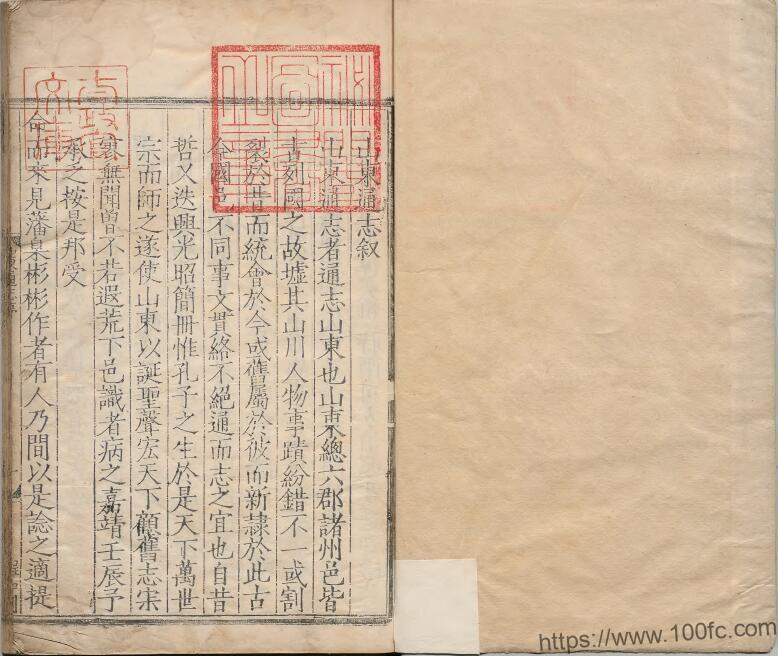 山東通志叙
山東通志者通志山東也山東總六郡諸州邑皆
書列國之故墟其山川人物事蹟紛錯不一或割
裂於昔而統會於今或舊屬於彼而新隸於此古
今國邑不同事文貫絡不絕通而志之宜也自昔
哲又迭興光昭簡冊惟孔子之生於是天下萬世
宗而師之遂使山東以誕聖聲宏天下顧舊志宋
裒無聞曽不若遐荒下邑識者病之嘉靖壬辰予
承乏按是邦受
命而來見藩臬彬彬作者有人乃間以是諗之適提
https://www.100fc.com